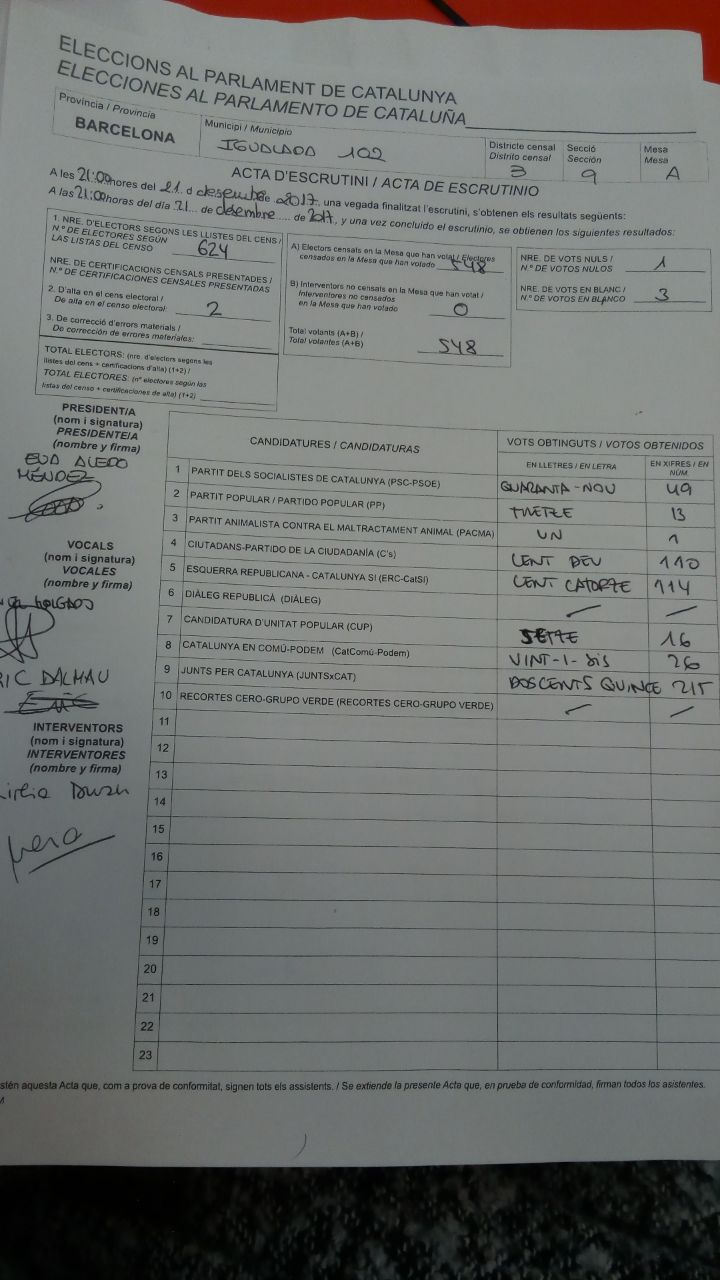 ELECCIONS AL PARLAMENT DE CATALUNYA
ELECCIONES AL PARLAMENTO DE CATALUÑA
Provincia / Provincia
BARCELONA
Municipi / Municipio
IGUALADA 102
Districte censal
Distrito censal
3
Secció
Sección
9
Mesa
Mesa
A
ACTA D'ESCRUTINI / ACTA DE ESCRUTINIO
A les 21:00 hores del 21 d desembre de 2017, una vegada finalitzat l'escrutini, s'obtenen els resultats següents:
A las 21:00 horas del día 21 ... de desembre .... de 2017, y una vez concluido el escrutinio, se obtienen los siguientes resultados:
1. NRE. D'ELECTORS SEGONS LES LLISTES DEL CENS /
N.º DE ELECTORES SEGÚN
LAS LISTAS DEL CENSO 624
NRE. DE CERTIFICACIONS CENSALS PRESENTADES /
N.º DE CERTIFICACIONES CENSALES PRESENTADAS
2. D'alta en el cens electoral /
De alta en el censo electoral: 2
3. De correcció d'errors materials /
De corrección de errores materiales:
TOTAL ELECTORS: (nre. d'electors segons les
llistes del cens + certificacions d'alta) (1+2) /
TOTAL ELECTORES: (nº electores según las
listas del censo + certificaciones de alta) (1+2)
A) Electors censats en la Mesa que han votat / Electores
censados en la Mesa que han votado 548
B) Interventors no censats en la Mesa que han votat /
Interventores no censados
en la Mesa que han votado 0
Total votants (A+B) /
Total votantes (A+B) 548
NRE. DE VOTS NULS /
N.º DE VOTOS NULOS 1
NRE. DE VOTS EN BLANC /
N.º DE VOTOS EN BLANCO 3
PRESIDENT/A
(nom i signatura)
PRESIDENTE/A
(nombre y firma)
EVA ALEDO
MÉNDEZ
VOCALS
(nom i signatura)
VOCALES
(nombre y firma)
HOLGADO
RIC DALMAU
INTERVENTORS
(nom i signatura)
INTERVENTORES
(nombre y firma)
CANDIDATURES / CANDIDATURAS
VOTS OBTINGUTS / VOTOS OBTENIDOS
EN LLETRES / EN LETRA
EN XIFRES / EN NÚM.
1 PARTIT DELS SOCIALISTES DE CATALUNYA (PSC-PSOE) QUARANTA-NOU 49
2 PARTIT POPULAR / PARTIDO POPULAR (PP) TRETZE 13
3 PARTIT ANIMALISTA CONTRA EL MALTRACTAMENT ANIMAL (PACMA) UN 1
4 CIUTADANS-PARTIDO DE LA CIUDADANÍA (C's) CENT DEU 110
5 ESQUERRA REPUBLICANA - CATALUNYA SI (ERC-CatSI) CENT CATORZE 114
6 DIÀLEG REPUBLICÀ (DIÀLEG) —
7 CANDIDATURA D'UNITAT POPULAR (CUP) SETZE 16
8 CATALUNYA EN COMÚ-PODEM (CatComú-Podem) VINT-I-SIS 26
9 JUNTS PER CATALUNYA (JUNTSxCAT) DOSCENTS QUINCE 215
10 RECORTES CERO-GRUPO VERDE (RECORTES CERO-GRUPO VERDE) —
11
12
13
14
15
16
17
18
19
20
21
22
23
stén aquesta Acta que, com a prova de conformitat, signen tots els assistents. / Se extiende la presente Acta que, en prueba de conformidad, firman todos los asistentes.